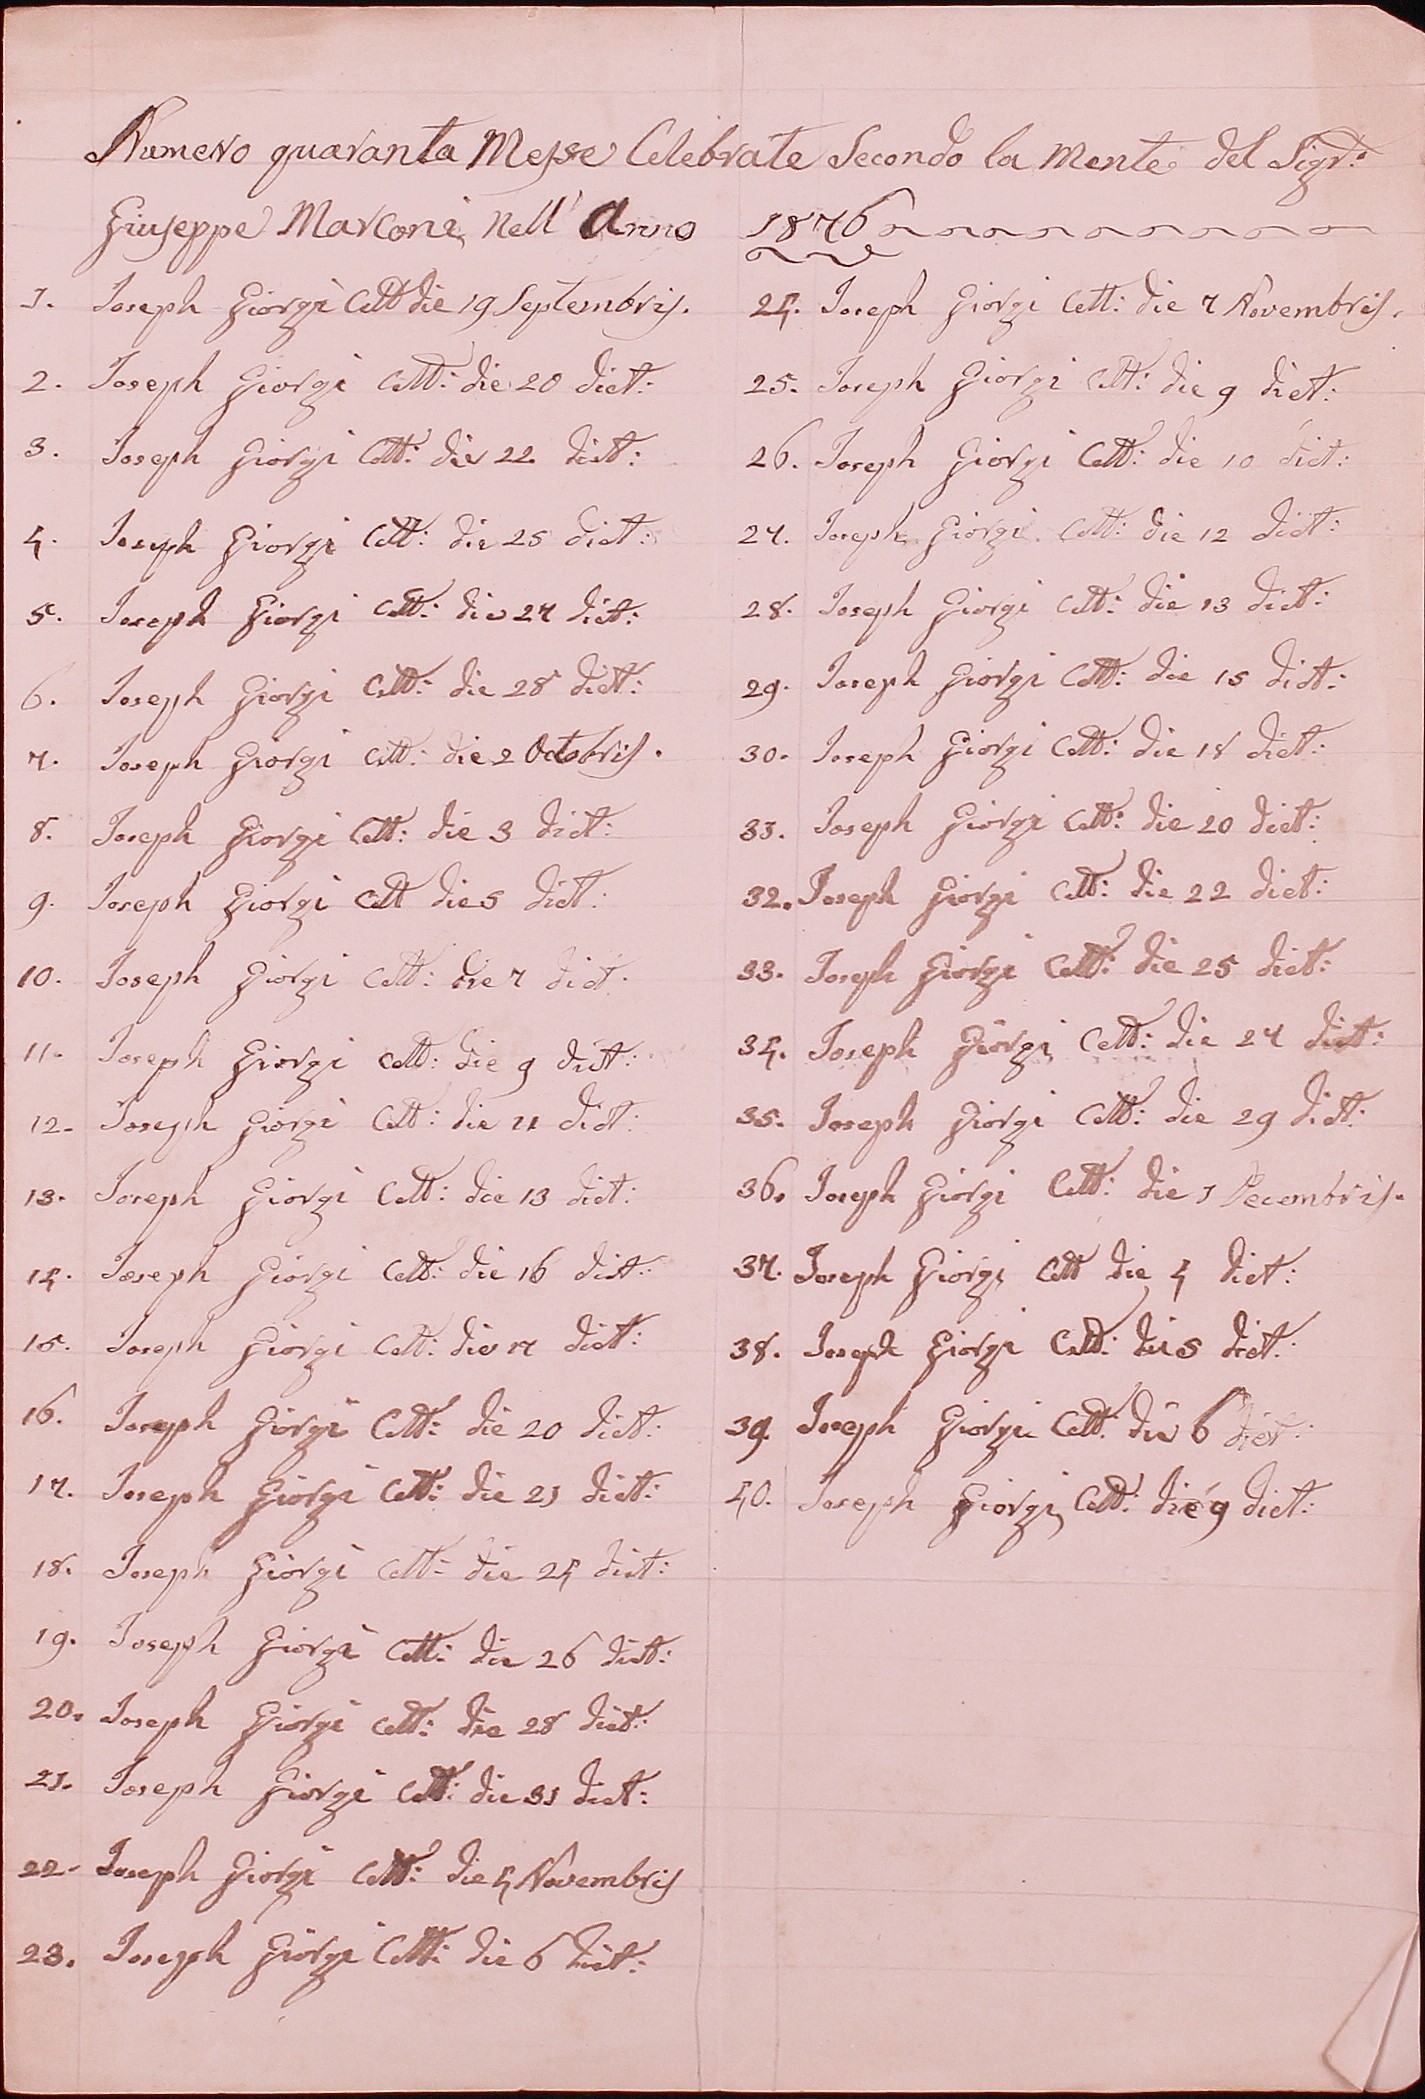 Numero quaranta Messe Celebrate Secondo la Mente del Sigr.
Giuseppe Marconi nell' Anno 1876
1. Joseph Giorgi Cett die 19 Septembris.
2. Joseph Giorgi Cett: die 20 dict:
3. Joseph Giorgi Cett: die 22 dict:
4. Joseph Giorgi Cett: die 25 dict:
5. Joseph Giorgi Cett: die 27 dict:
6. Joseph Giorgi Cett: die 28 dict:
7. Joseph Giorgi Cett: die 2 Octobris.
8. Joseph Giorgi Cett: die 3 dict:
9. Joseph Giorgi Cett die 5 dict:
10. Joseph Giorgi Cett: die 7 dict:
11. Joseph Giorgi Cett: die 9 dict:
12. Joseph Giorgi Cett: die 11 dict:
13. Joseph Giorgi Cett: die 13 dict:
14. Joseph Giorgi Cett: die 16 dict:
15. Joseph Giorgi Cett: die 17 dict:
16. Joseph Giorgi Cett: die 20 dict:
17. Joseph Giorgi Cett: die 21 dict:
18. Joseph Giorgi Cett: die 24 dict:
19. Joseph Giorgi Cett: die 26 dict:
20. Joseph Giorgi Cett: die 28 dict:
21. Joseph Giorgi Cett: die 31 dict:
22. Joseph Giorgi Cett: die 4 Novembris
23. Joseph Giorgi Cett: die 6 dict:
24. Joseph Giorgi Cett: die 7 Novembris.
25. Joseph Giorgi Cett: die 9 dict:
26. Joseph Giorgi Cett: die 10 dict:
27. Joseph Giorgi Cett: die 12 dict:
28. Joseph Giorgi Cett: die 13 dict:
29. Joseph Giorgi Cett: die 15 dict:
30. Joseph Giorgi Cett: die 18 dict:
31. Joseph Giorgi Cett: die 20 dict:
32. Joseph Giorgi Cett: die 22 dict:
33. Joseph Giorgi Cett: die 25 dict:
34. Joseph Giorgi Cett: die 27 dict:
35. Joseph Giorgi Cett: die 29 dict:
36. Joseph Giorgi Cett: die 1 Decembris.
37. Joseph Giorgi Cett die 4 dict:
38. Joseph Giorgi Cett: die 5 dict:
39. Joseph Giorgi Cett: die 6 dict:
40. Joseph Giorgi Cett: die 9 dict: